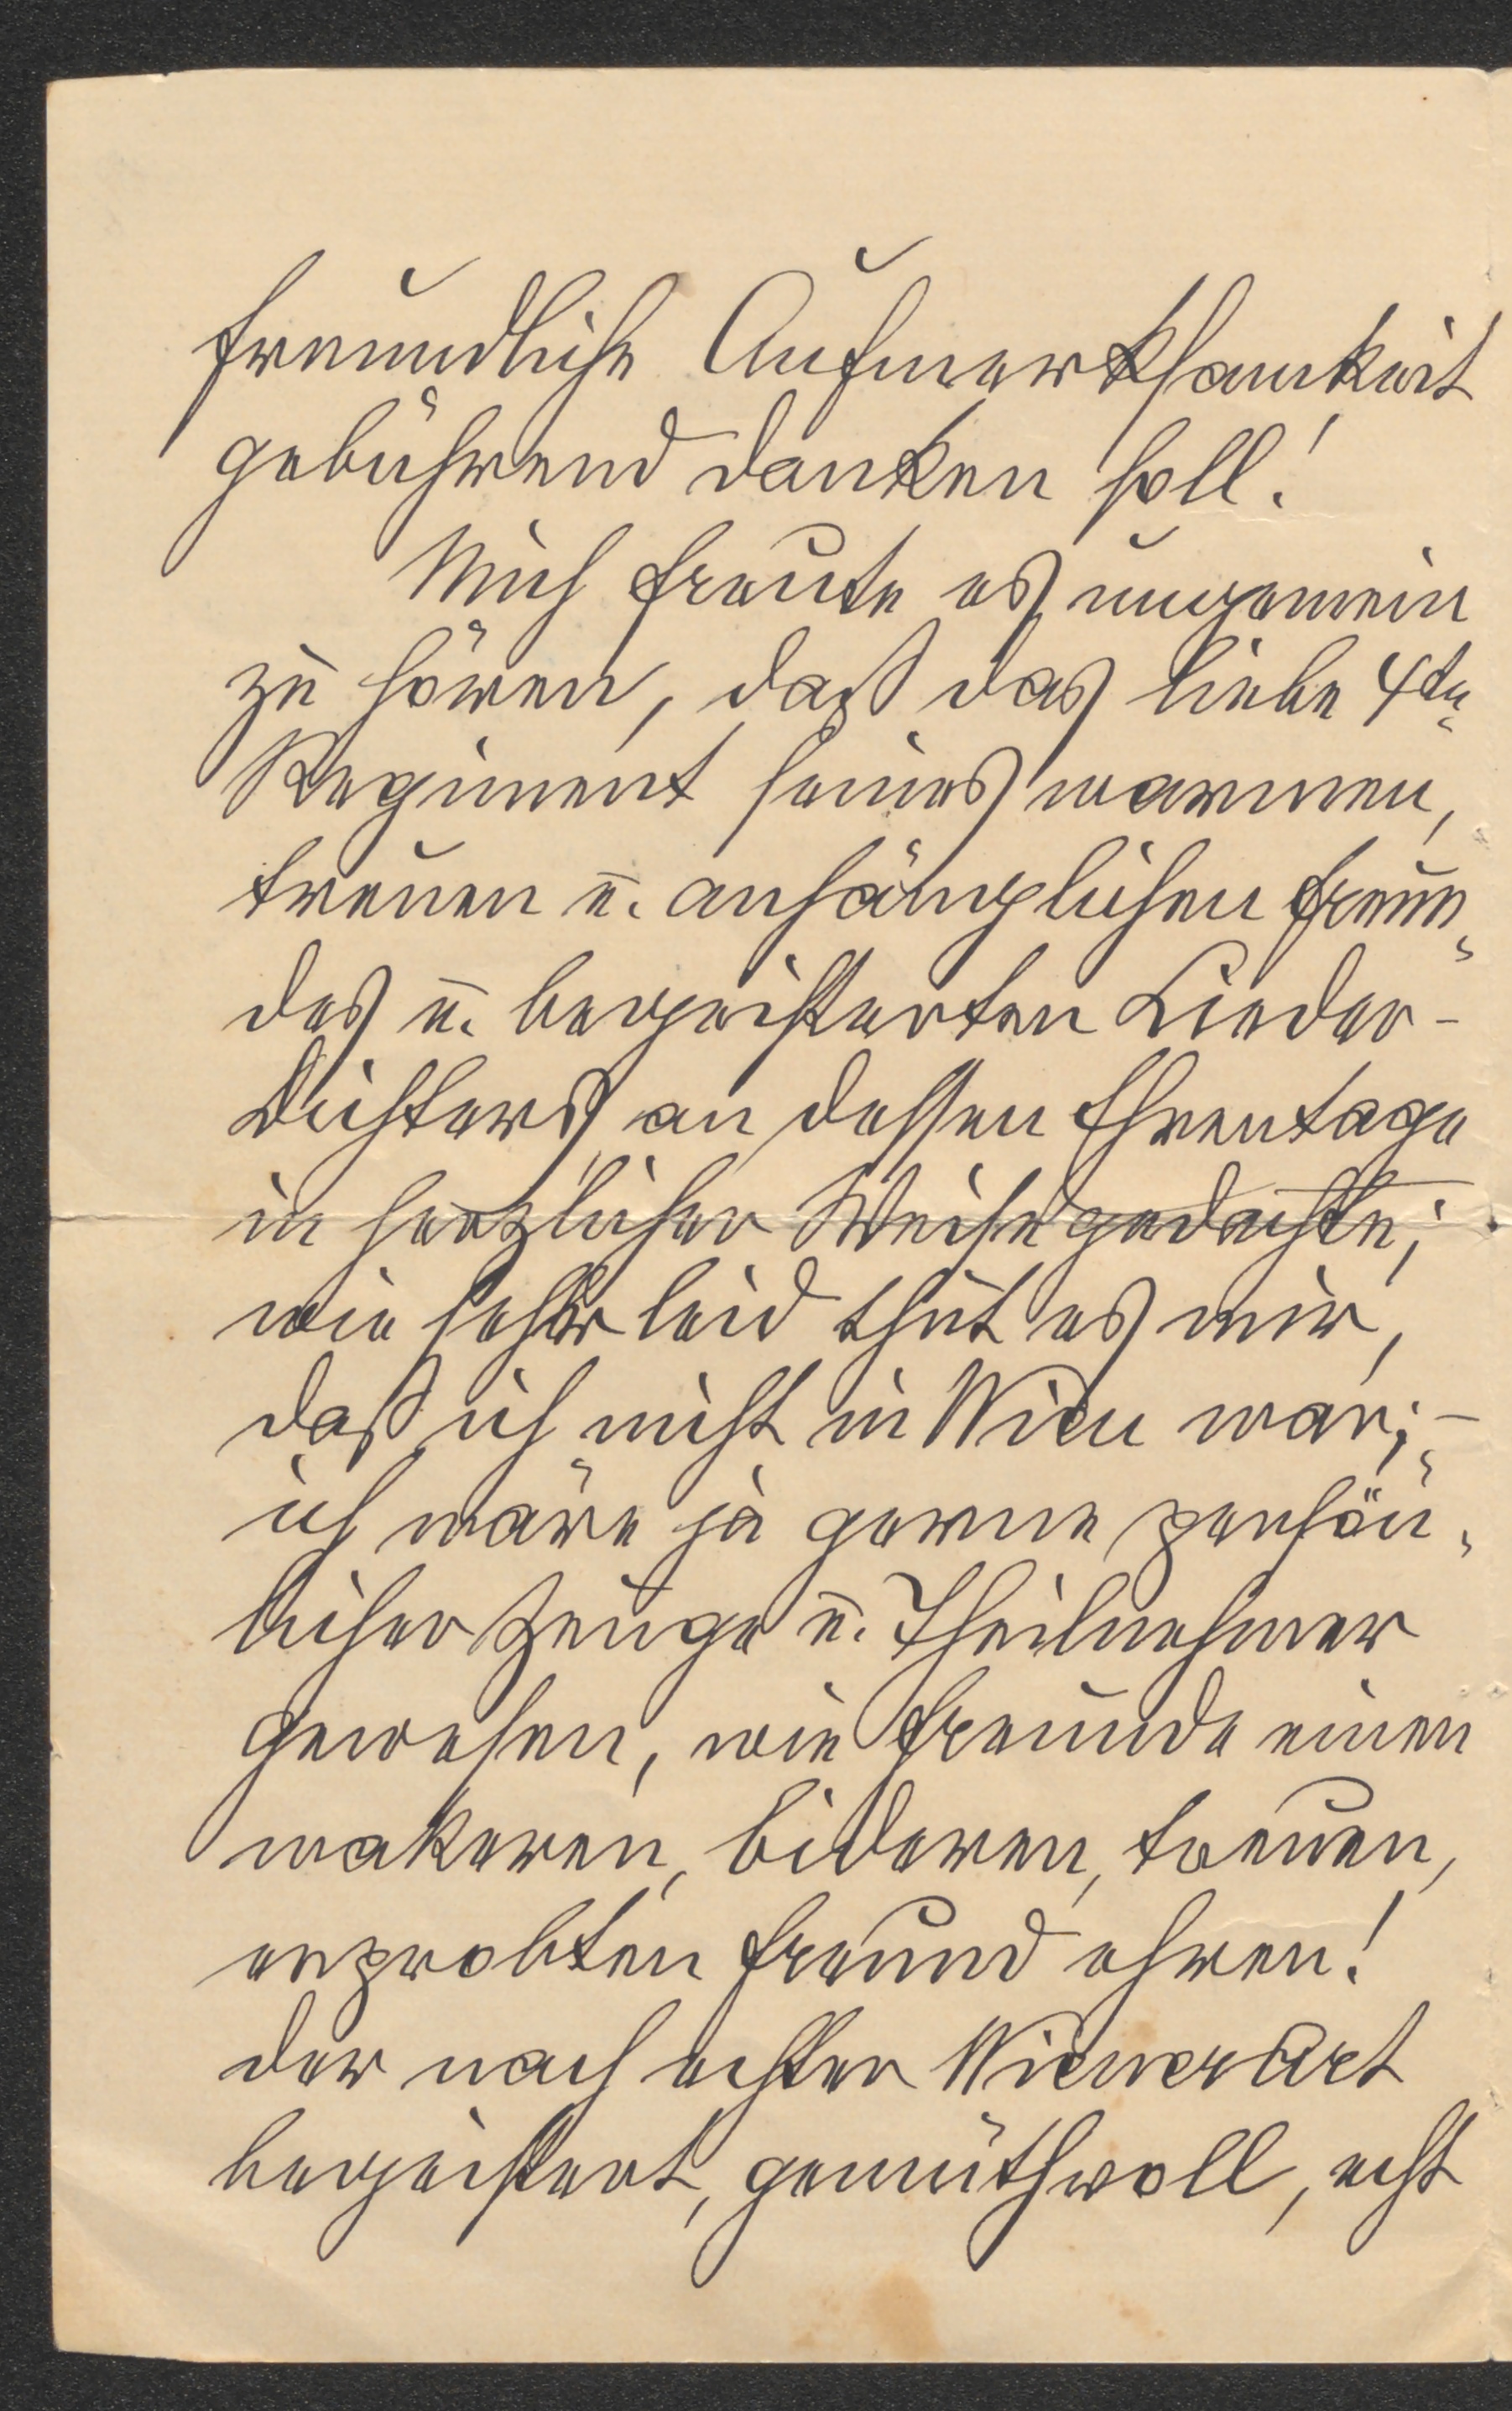 freundliche Aufmerksamkeit
gebührend danken soll!
Mich freute es ungemein
zu hören, daß das liebe 4te
Regiment seines warmen,
treuen u. anhänglichen Freun„
des u. begeisterten Lieder-
Dichters an dessen Ehrentage
in herzlicher Weise gedachte;
wie sehr leid thut es mir,
daß ich nicht in Wien war; –
ich wäre ja gerne persön„
licher Zeuge u. Theilnehmer
gewesen, wie Freunde einen
wakeren, bideren, treuen,
erprobten Freund ehren!
der nach echter Wiener Art
begeistert, gemüthvoll, echt